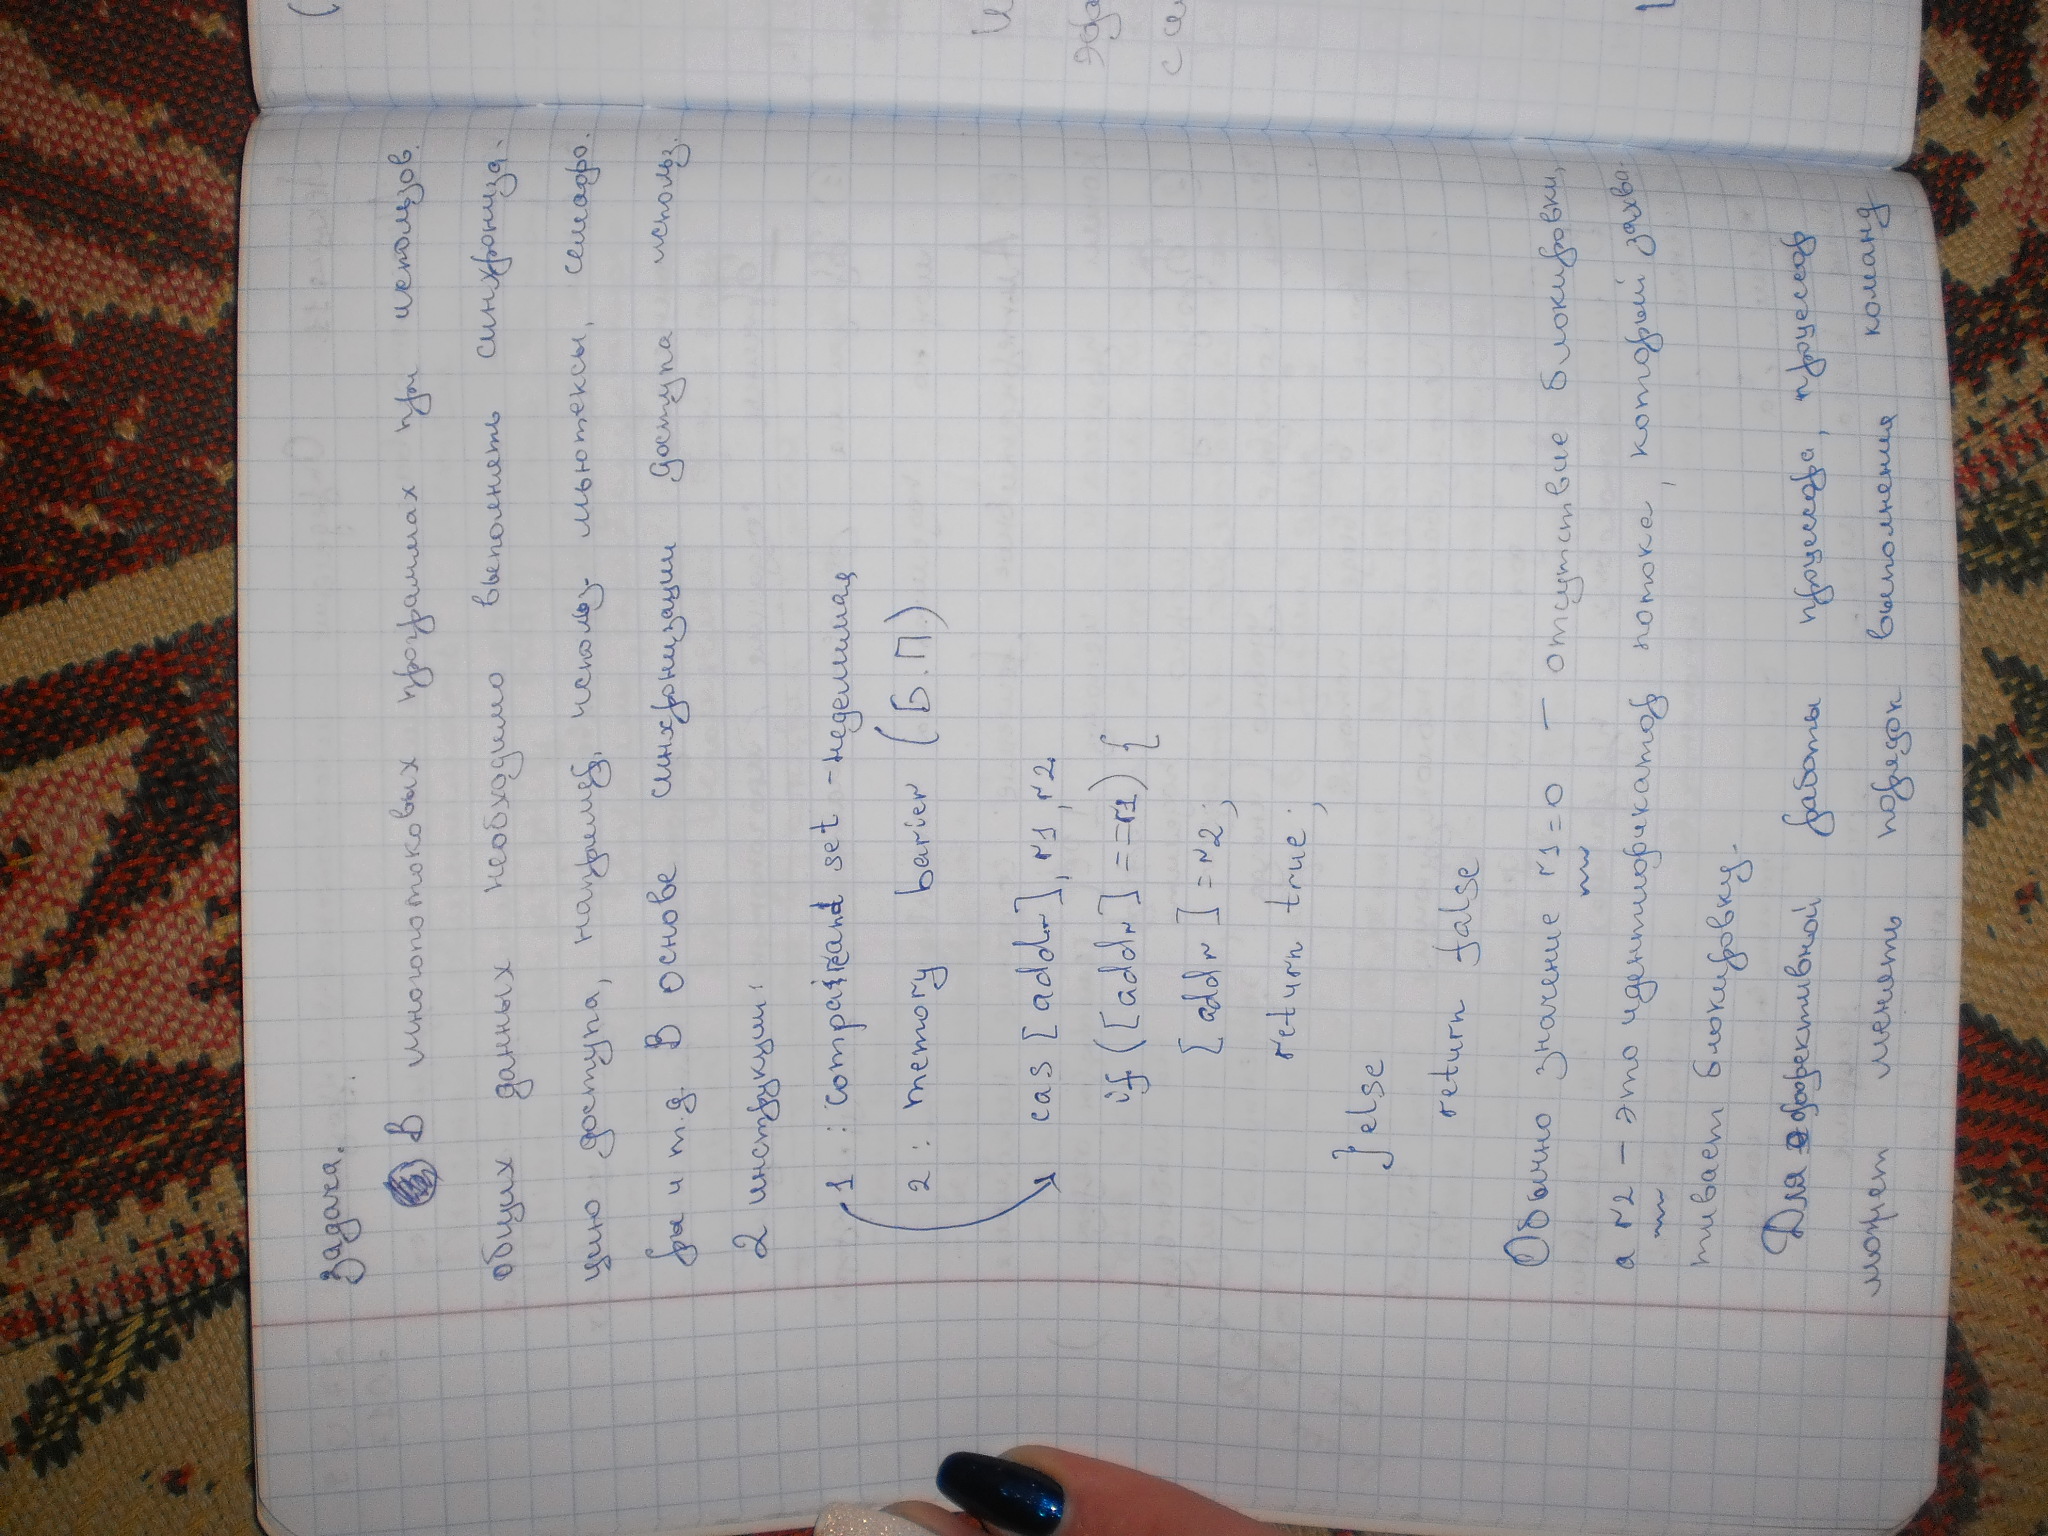 Задача.
В многопотоковых програмах при использов.
общих данных необходимо выполнять синхрониза-
цию доступа, например, использ. мьютексы, семафо.
ры и т.д. В основе синхронизации доступа использ.
2 инструкции:
1 : compaireand set - неделимая
2 : memory barier (Б.П.)
cas [addr], r1, r2
if ([addr] == r1) {
[addr] = r2;
return true;
} else ;
return false
Обычно значение r1=0 — отсутствие блокировки,
а r2 — это идентификатор потока, который захва-
тывает блокировку.
Для эффективной работы процессора, процессор
может менять порядок выполнения команд